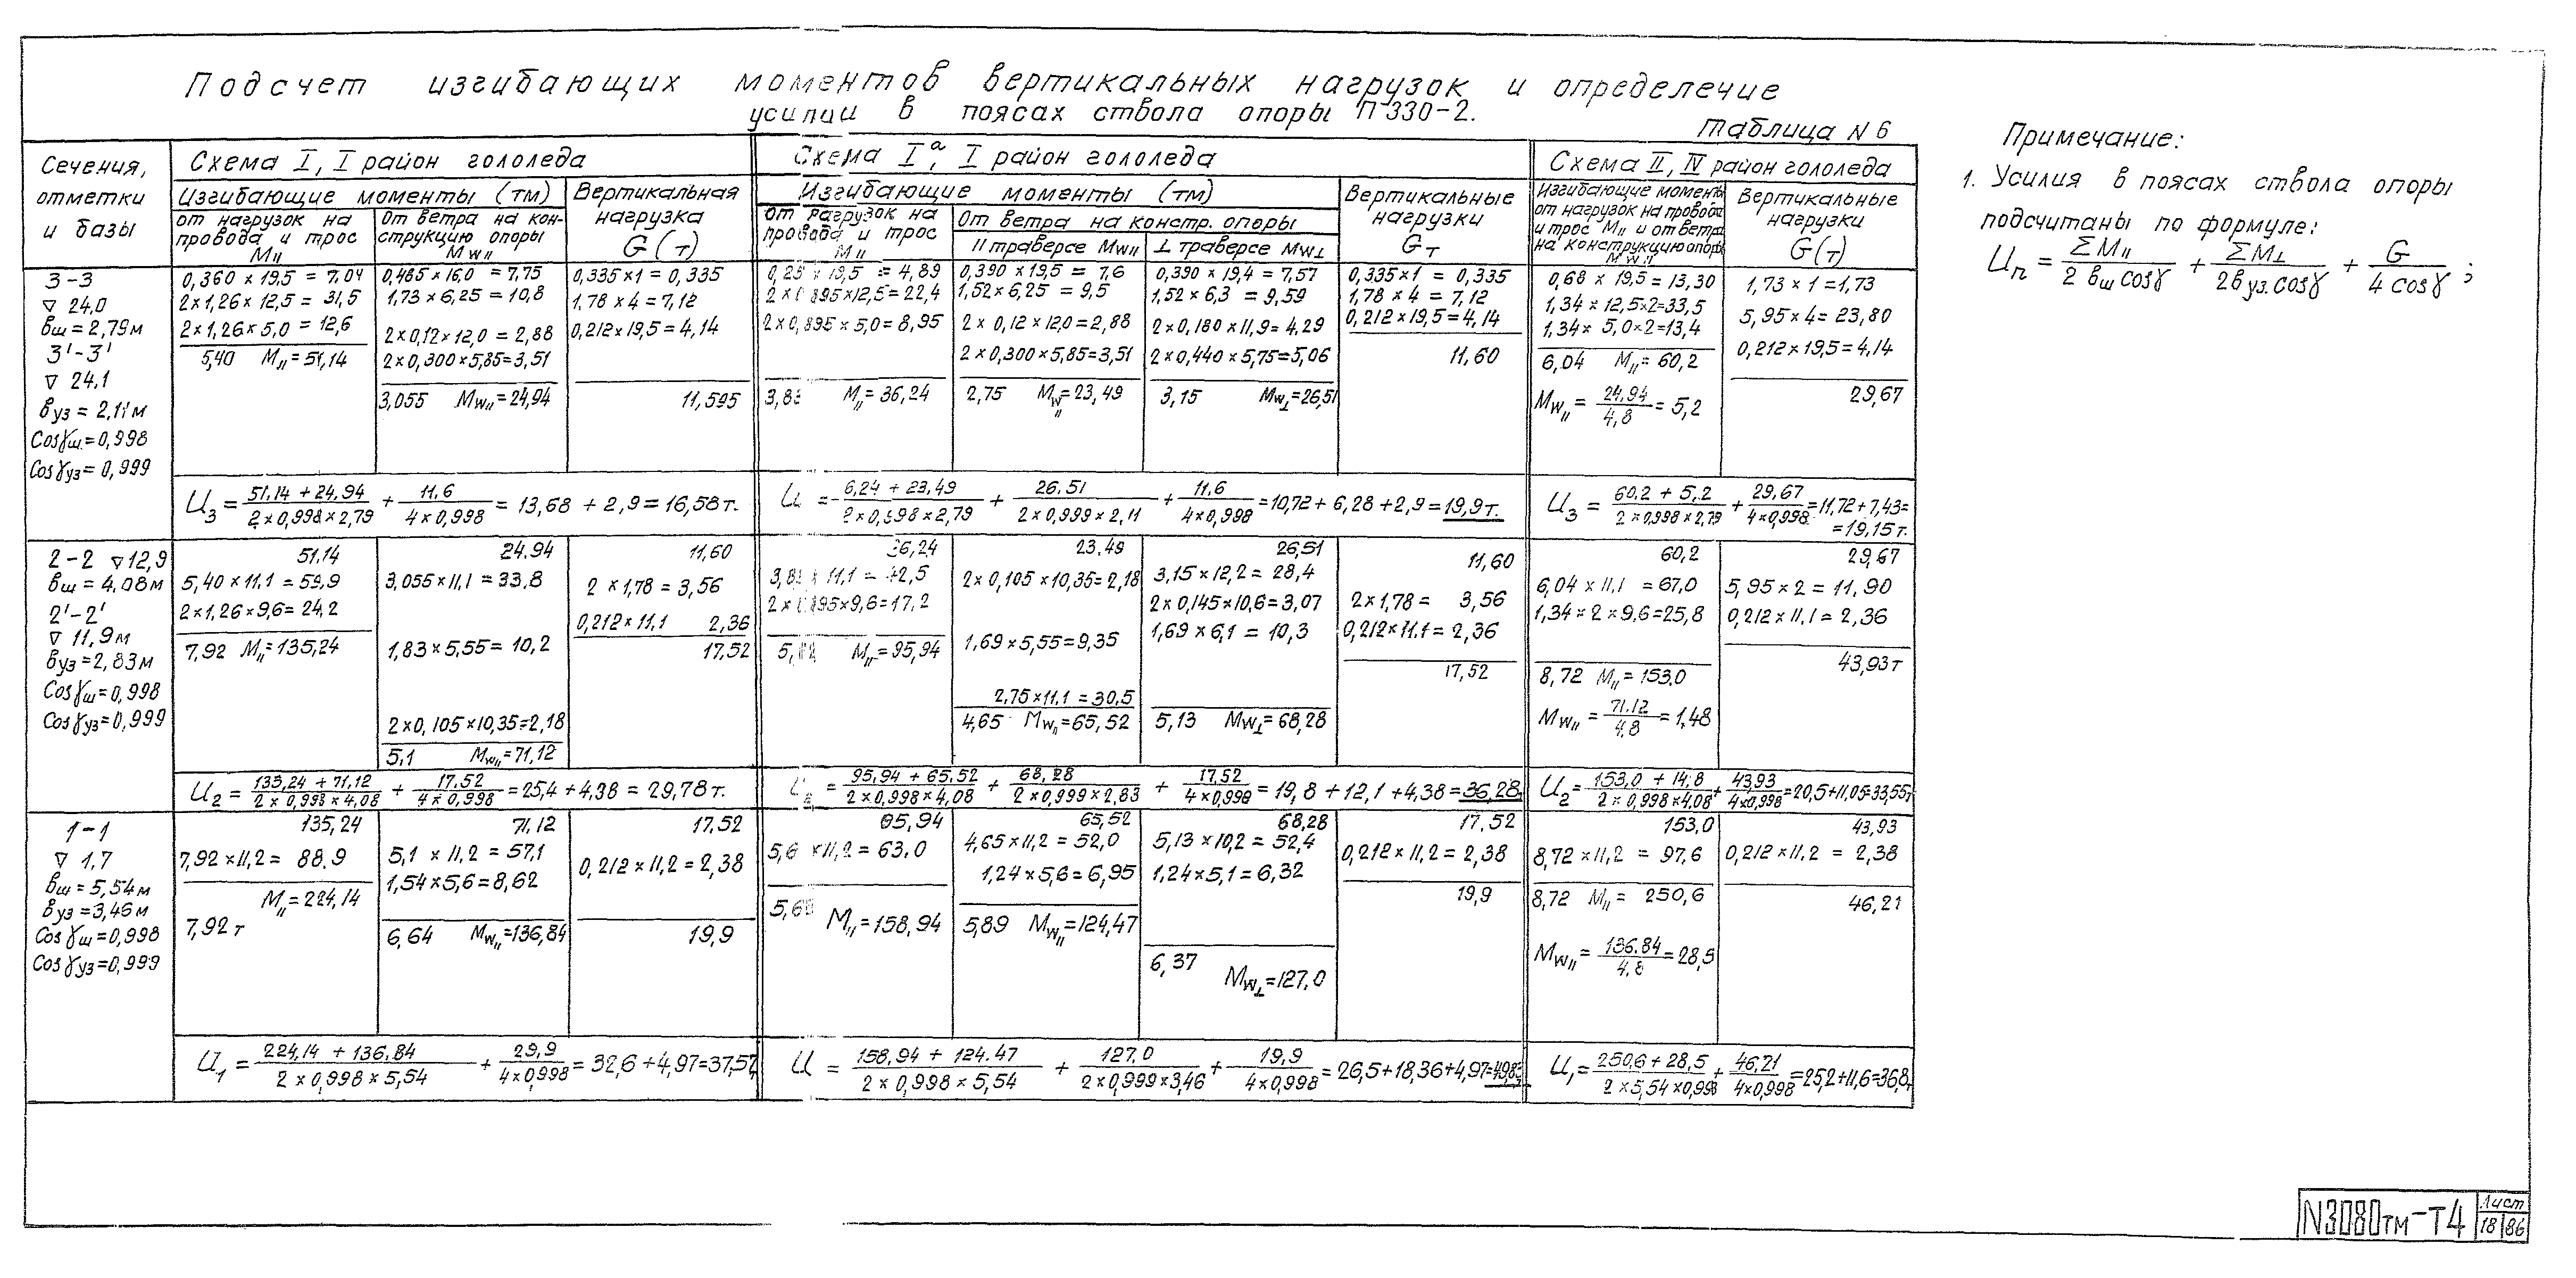 Подсчет изгибающих моментов вертикальных нагрузок и определение
усилий в поясах ствола опоры П330-2.
Таблица N 6
Сечения,
отметки
и базы
Схема I, I район гололеда
Изгибающие моменты (тм)
Вертикальная
нагрузка
G (т)
от нагрузок на
провода и трос
M∥
От ветра на кон-
струкцию опоры
Mw∥
Схема Iа, I район гололеда
Изгибающие моменты (тм)
От нагрузок на
провода и трос
M∥
От ветра на констр. опоры
∥ траверсе Mw∥
⊥ траверсе Mw⊥
Вертикальные
нагрузки
Gт
Схема II, IV район гололеда
Изгибающие моменты
от нагрузок на провода
и трос M∥ и от ветра
на конструкцию опоры
Mw∥
Вертикальные
нагрузки
G(т)
3-3
∇ 24,0
вш = 2,79м
3'-3'
∇ 24,1
вуз = 2,11м
Cosγш = 0,998
Cosγуз = 0,999
0,360 × 19,5 = 7,04
2×1,26 × 12,5 = 31,5
2×1,26×5,0 = 12,6
5,40 M∥ = 51,14
0,485 × 16,0 = 7,75
1,73 × 6,25 = 10,8
2×0,12×12,0 = 2,88
2×0,300×5,85=3,51
3,055 Mw∥ = 24,94
0,335×1 = 0,335
1,78 × 4 = 7,12
0,212×19,5 = 4,14
11,595
0,25 × 19,5 = 4,89
2×0,895×12,5=22,4
2×0,895×5,0=8,95
3,83 M∥ = 36,24
0,390 × 19,5 = 7,6
1,52×6,25 = 9,5
2×0,12×12,0=2,88
2×0,300×5,85=3,51
2,75 Mw∥ = 23,49
0,390 × 19,4 = 7,57
1,52 × 6,3 = 9,59
2×0,180×11,9 = 4,29
2×0,440×5,75=5,06
3,15 Mw⊥ = 26,51
0,335×1 = 0,335
1,78 × 4 = 7,12
0,212×19,5 = 4,14
11,60
0,68 × 19,5 = 13,30
1,34 × 12,5×2=33,5
1,34 × 5,0×2=13,4
6,04 M∥ = 60,2
Mw∥ = 24,94 / 4,8 = 5,2
1,73 × 1 = 1,73
5,95×4 = 23,80
0,212×19,5 = 4,14
29,67
U3 = 51,14 + 24,94 / 2×0,998×2,79 + 11,6 / 4×0,998 = 13,68 + 2,9 = 16,58т.
U = 6,24 + 23,49 / 2×0,998×2,79 + 26,51 / 2×0,999×2,11 + 11,6 / 4×0,998 = 10,72 + 6,28 + 2,9 = 19,9т.
U3 = 60,2 + 5,2 / 2×0,998×2,79 + 29,67 / 4×0,998 = 11,72 + 7,43 =
= 19,15т.
2-2 ∇12,9
вш = 4,08м
2'-2'
∇ 11,9м
вуз = 2,83м
Cosγш = 0,998
Cosγуз = 0,999
51,14
5,40 × 11,1 = 59,9
2×1,26×9,6 = 24,2
7,92 M∥ = 135,24
24,94
3,055 × 11,1 = 33,8
1,83 × 5,55 = 10,2
2×0,105×10,35=2,18
5,1 Mw∥ = 71,12
11,60
2 × 1,78 = 3,56
0,212 × 11,1 2,36
17,52
36,24
3,83 × 11,1 = 42,5
2×0,895×9,6=17,2
M∥ = 95,94
23,49
2×0,105×10,35=2,18
1,69×5,55=9,35
2,75×11,1 = 30,5
4,65 Mw∥ = 65,52
26,51
3,15×12,2 = 28,4
2×0,145×10,6=3,07
1,69×6,1 = 10,3
5,13 Mw⊥ = 68,28
11,60
2×1,78 = 3,56
0,212×11,1 = 2,36
17,52
60,2
6,04 × 11,1 = 67,0
1,34×2×9,6=25,8
8,72 M∥ = 153,0
Mw∥ = 71,12 / 4,8 = 1,48
29,67
5,95×2 = 11,90
0,212×11,1 = 2,36
43,93т
U2 = 135,24 + 71,12 / 2×0,998×4,08 + 17,52 / 4×0,998 = 25,4 + 4,38 = 29,78т.
95,94 + 65,52 / 2×0,998×4,08 + 68,28 / 2×0,999×2,83 + 17,52 / 4×0,998 = 19,8 + 12,1 + 4,38 = 36,28т
U2 = 153,0 + 14,8 / 2×0,998×4,08 + 43,93 / 4×0,998 = 20,5 + 11,05 = 33,55т
1-1
∇ 1,7
вш = 5,54м
вуз = 3,46м
Cosγш = 0,998
Cosγуз = 0,999
135,24
7,92×11,2 = 88,9
M∥ = 224,14
7,92т
71,12
5,1 × 11,2 = 57,1
1,54×5,6=8,62
6,64 Mw∥ = 136,84
17,52
0,212×11,2 = 2,38
19,9
95,94
5,6 ×11,2 = 63,0
5,68
M∥ = 158,94
65,52
4,65×11,2 = 52,0
1,24×5,6 = 6,95
5,89 Mw∥ = 124,47
68,28
5,13×10,2 = 52,4
1,24×5,1 = 6,32
6,37
Mw⊥ = 127,0
17,52
0,212×11,2 = 2,38
19,9
153,0
8,72×11,2 = 97,6
8,72 M∥ = 250,6
Mw∥ = 136,84 / 4,8 = 28,5
43,93
0,212×11,2 = 2,38
46,21
U1 = 224,14 + 136,84 / 2×0,998×5,54 + 29,9 / 4×0,998 = 32,6 + 4,97 = 37,57
U = 158,94 + 124,47 / 2×0,998×5,54 + 127,0 / 2×0,999×3,46 + 19,9 / 4×0,998 = 26,5 + 18,36 + 4,97 = 49,83т
U1 = 250,6 + 28,5 / 2×5,54×0,998 + 46,21 / 4×0,998 = 25,2 + 11,6 = 36,8т
Примечание:
1. Усилия в поясах ствола опоры
подсчитаны по формуле:
Uп = ΣM∥ / 2 вш cosγ + ΣM⊥ / 2вуз. cosγ + G / 4 cosγ ;
N3080тм-Т4
Лист
18 86